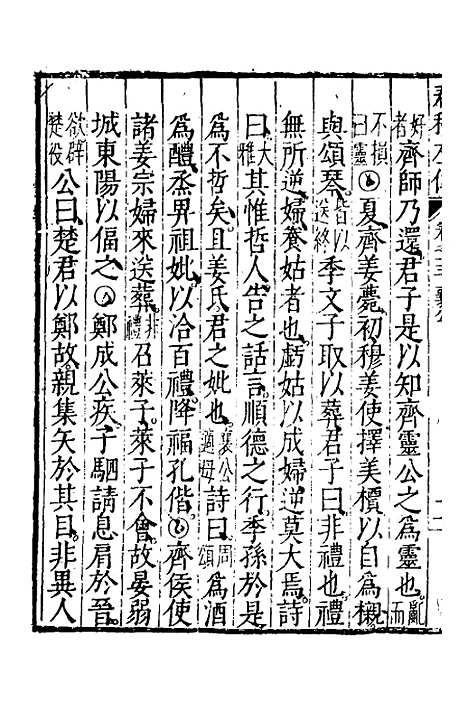 春秋左傳
好者齊師乃還。君子是以知齊靈公之爲靈也。亂而
不損曰靈○夏齊姜薨。初穆姜使擇美檟以自爲櫬
與頌琴。皆以送終季文子取以葬。君子曰非禮也。禮
無所逆。婦養姑者也。虧姑以成婦。逆莫大焉。詩
曰大雅其惟哲人。告之話言。順德之行。季孫於是
爲不哲矣。且姜氏君之妣也。襄公適母詩曰周頌爲酒
爲醴。烝畀祖妣。以洽百禮。降福孔偕。○齊侯使
諸姜宗婦來送葬。非禮召萊子。萊子不會。故晏弱
城東陽以偪之。○鄭成公疾。子駟請息肩於晉。
欲辟楚役公曰楚君以鄭故。親集矢於其目。非異人